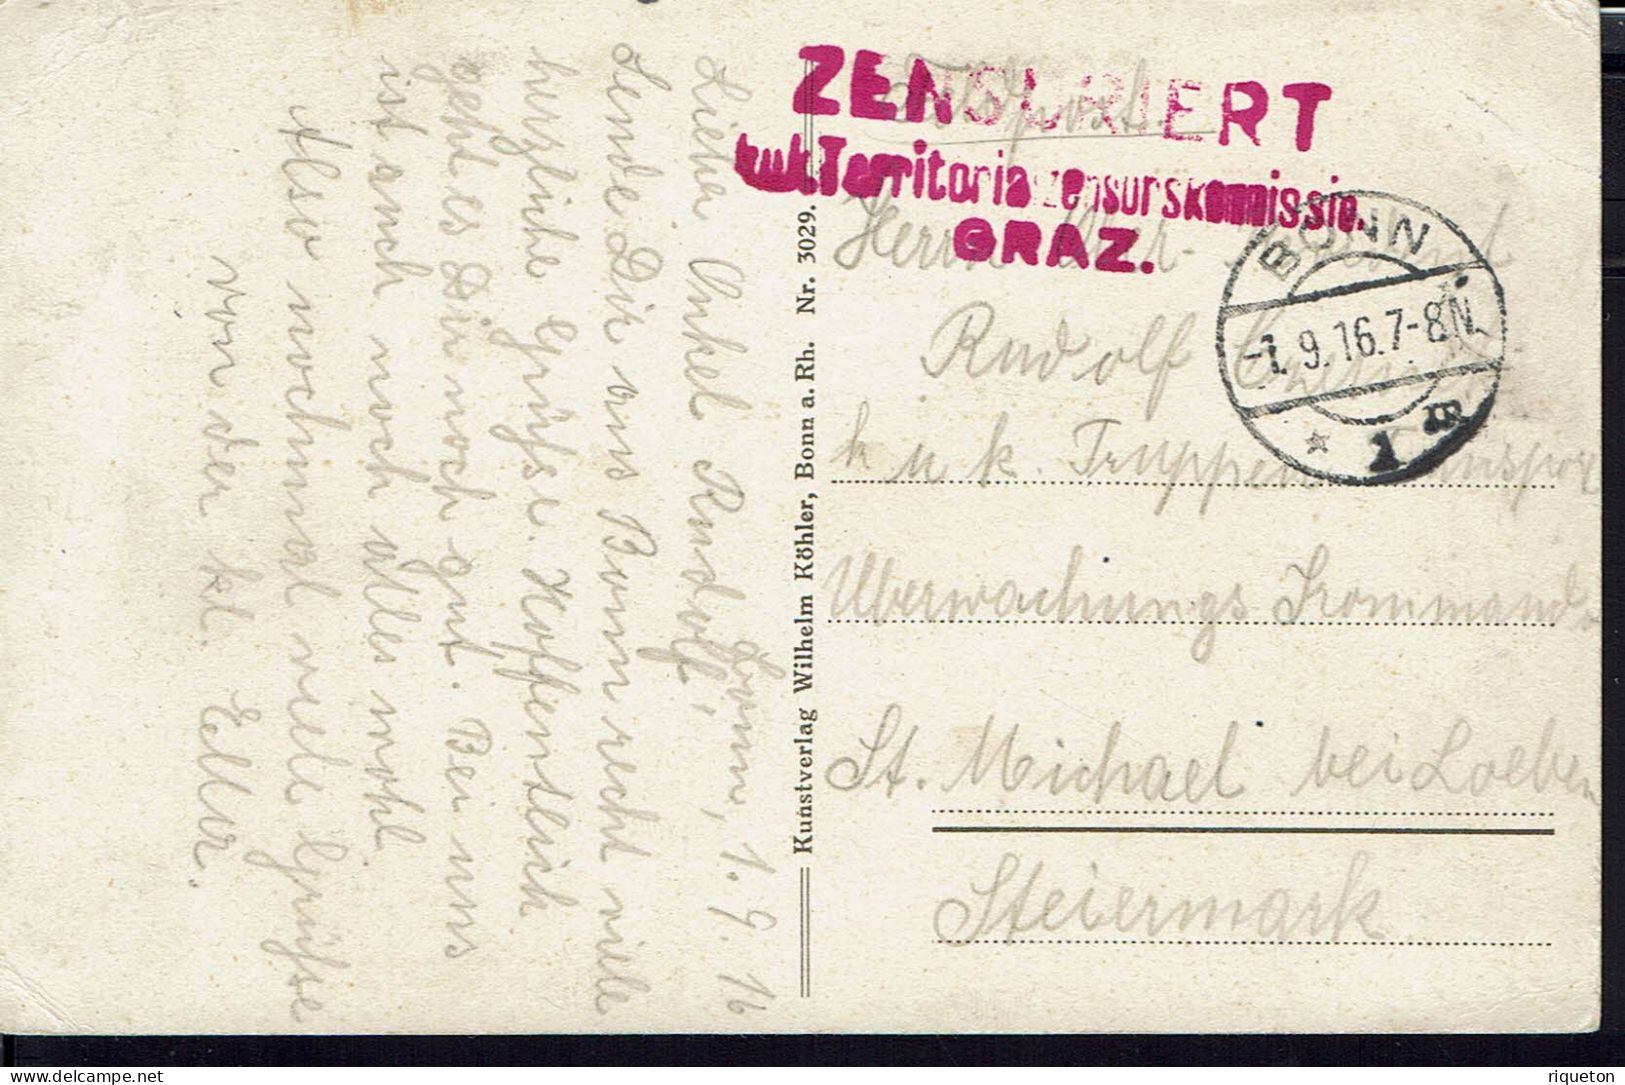 Bonn, 1. 9. 16
Lieber Onkel Rudolf!
Sende Dir aus Bonn recht viele
herzliche Grüsse. Hoffentlich
geht es Dir noch gut. Bei uns
ist auch noch alles wohl.
Also nochmal viele Grüsse
von der kl.
Kunstverlag Wilhelm Köhler, Bonn a. Rh. Nr. 3029.
Feldpost.
ZENSURIERT
k.u.k. Territorialzensurskommission.
GRAZ.
BONN
-1. 9. 16. 7-8 N.
* 1 m
Herrn
Rudolf
k u k. Truppen
Überwachungs Kommando
St. Michael bei Loeben
Steiermark
riqueton